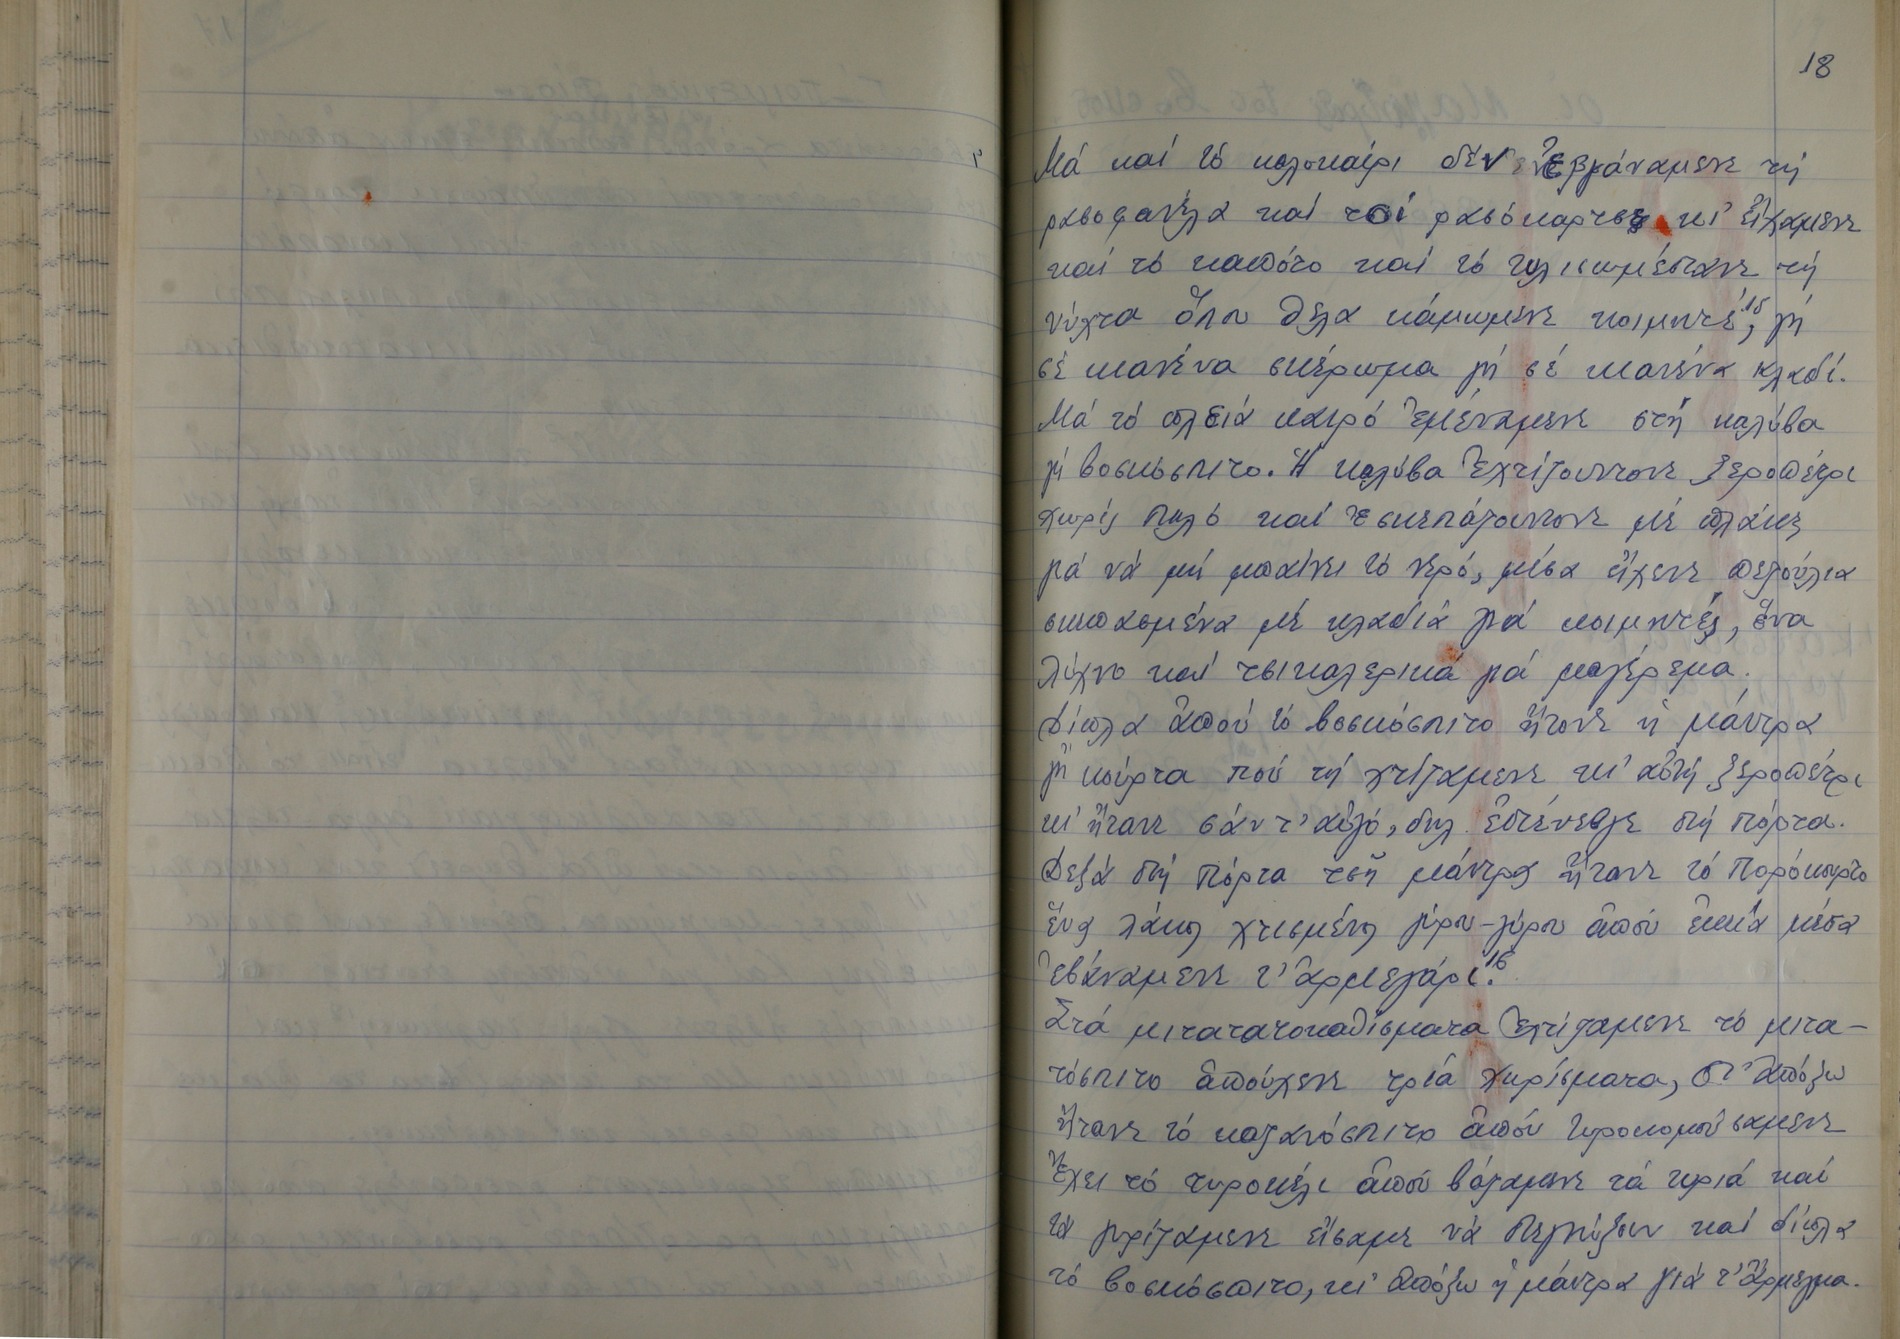 18
Μά καί τό καλοκαίρι δέν ἐβγάναμενε τή
ρασοφανέλα καί τσί ρασόκαρτσες κι' εἴχαμενε
καί τό καπότο καί τό τυλισωμέστανε τή
νύχτα ὅπου θέλα κάμωμενε κοιμητέ,¹⁵ γή
σέ κανένα σπέρωμα γή σέ κανένα κλαδί.
Μά τό πλειά καιρό ἐμέναμενε στή καλύβα
γή βοσκόσπιτο. Ἡ καλύβα ἐχτίζουντονε ξεροπέτρι
χωρίς πηλό καί ἐσκεπάζουντονε μέ πλάκες
γιά νά μή μπαίνει τό νερό, μέσα εἴχενε πεζούλια
σκεπασμένα μέ κλαδιά γιά κοιμητές, ἕνα
λύχνο καί τσικαλερικά γιά μαγέρεμα.
Δίπλα ἀπού τό βοσκόσπιτο ἤτονε ἡ μάντρα
γή κούρτα πού τή χτίζαμενε κι' αὐτή ξεροπέτρι
κι' ἤτανε σάν τ' αὐγό, δηλ. ἐστένευγε στή πόρτα.
Δεξά στή πόρτα τσῆ μάντρας ἤτανε τό παρόκουρτο
ἕνας λάκος χτισμένος γύρου-γύρου ἀπού ἐκειά μέσα
ἐβάναμενε τ' ἀρμεγάρι.¹⁶
Στά μιτατατοκαθίσματα ἐχτίζαμενε τό μιτα-
τόσπιτο ἀπούχενε τρία χωρίσματα, στ' ἀπόξω
ἤτανε τό καζανόσπιτο ἀπού τυροκομούσαμενε
Ἔχει τό τυροκέλι ἀπού βάζαμενε τά τυριά καί
τά γυρίζαμενε εἴσαμε νά στεγνώξουν καί δίπλα
τό βοσκόσπιτο, κι' ἀπόξω ἡ μάντρα γιά τ' ἄρμεγμα.